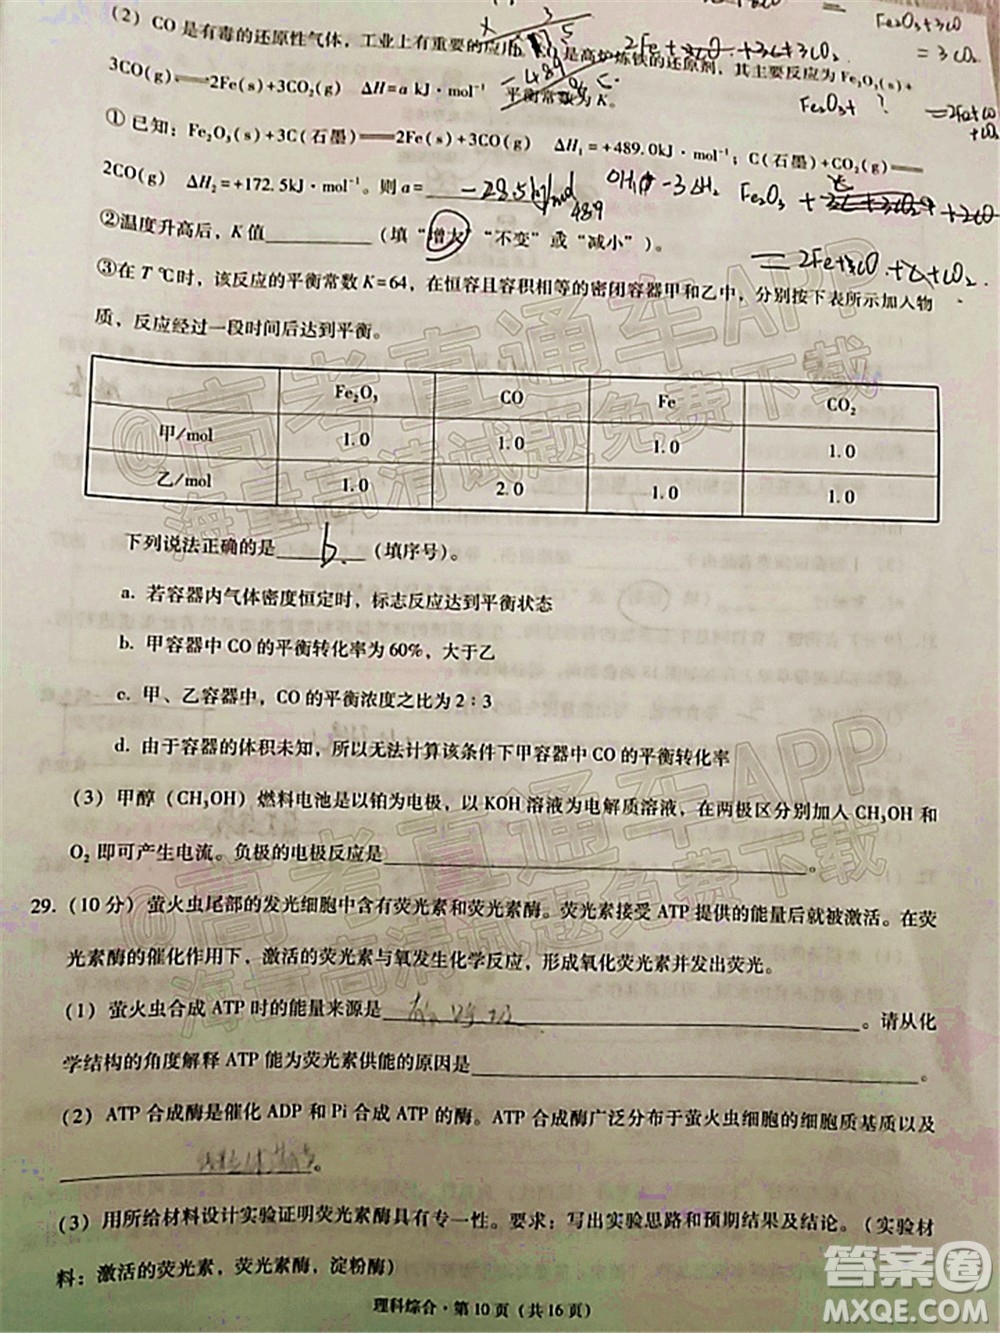 Fe₂O₃+3CO
(2) CO 是有毒的还原性气体，工业上有重要的应用。CO 是高炉炼铁的还原剂，其主要反应为 Fe₂O₃(s)+
= 3CO₂
3CO(g)══2Fe(s)+3CO₂(g) ΔH=a kJ·mol⁻¹ 平衡常数为 K。
Fe₂O₃+ ?
① 已知：Fe₂O₃(s)+3C(石墨)══2Fe(s)+3CO(g) ΔH₁=+489.0kJ·mol⁻¹；C(石墨)+CO₂(g)══
2CO(g) ΔH₂=+172.5kJ·mol⁻¹。则 a= -28.5kJ/mol
489
②温度升高后，K 值________（填“增大”“不变”或“减小”）。
③在 T ℃时，该反应的平衡常数 K=64，在恒容且容积相等的密闭容器甲和乙中，分别按下表所示加入物
质，反应经过一段时间后达到平衡。
Fe₂O₃ CO Fe CO₂
甲/mol 1.0 1.0 1.0 1.0
乙/mol 1.0 2.0 1.0 1.0
下列说法正确的是 b （填序号）。
a. 若容器内气体密度恒定时，标志反应达到平衡状态
b. 甲容器中 CO 的平衡转化率为 60%，大于乙
c. 甲、乙容器中，CO 的平衡浓度之比为 2∶3
d. 由于容器的体积未知，所以无法计算该条件下甲容器中 CO 的平衡转化率
(3) 甲醇（CH₃OH）燃料电池是以铂为电极，以 KOH 溶液为电解质溶液，在两极区分别加入 CH₃OH 和
O₂ 即可产生电流。负极的电极反应是________。
29.（10 分）萤火虫尾部的发光细胞中含有荧光素和荧光素酶。荧光素接受 ATP 提供的能量后就被激活。在荧
光素酶的催化作用下，激活的荧光素与氧发生化学反应，形成氧化荧光素并发出荧光。
(1) 萤火虫合成 ATP 时的能量来源是________。请从化
学结构的角度解释 ATP 能为荧光素供能的原因是________
(2) ATP 合成酶是催化 ADP 和 Pi 合成 ATP 的酶。ATP 合成酶广泛分布于萤火虫细胞的细胞质基质以及
________。
(3) 用所给材料设计实验证明荧光素酶具有专一性。要求：写出实验思路和预期结果及结论。（实验材
料：激活的荧光素，荧光素酶，淀粉酶）
理科综合·第 10 页（共 16 页）
@高考直通车APP
海量高清试题免费下载
@高考直通车APP
海量高清试题免费下载
答案圈
MXQE.COM